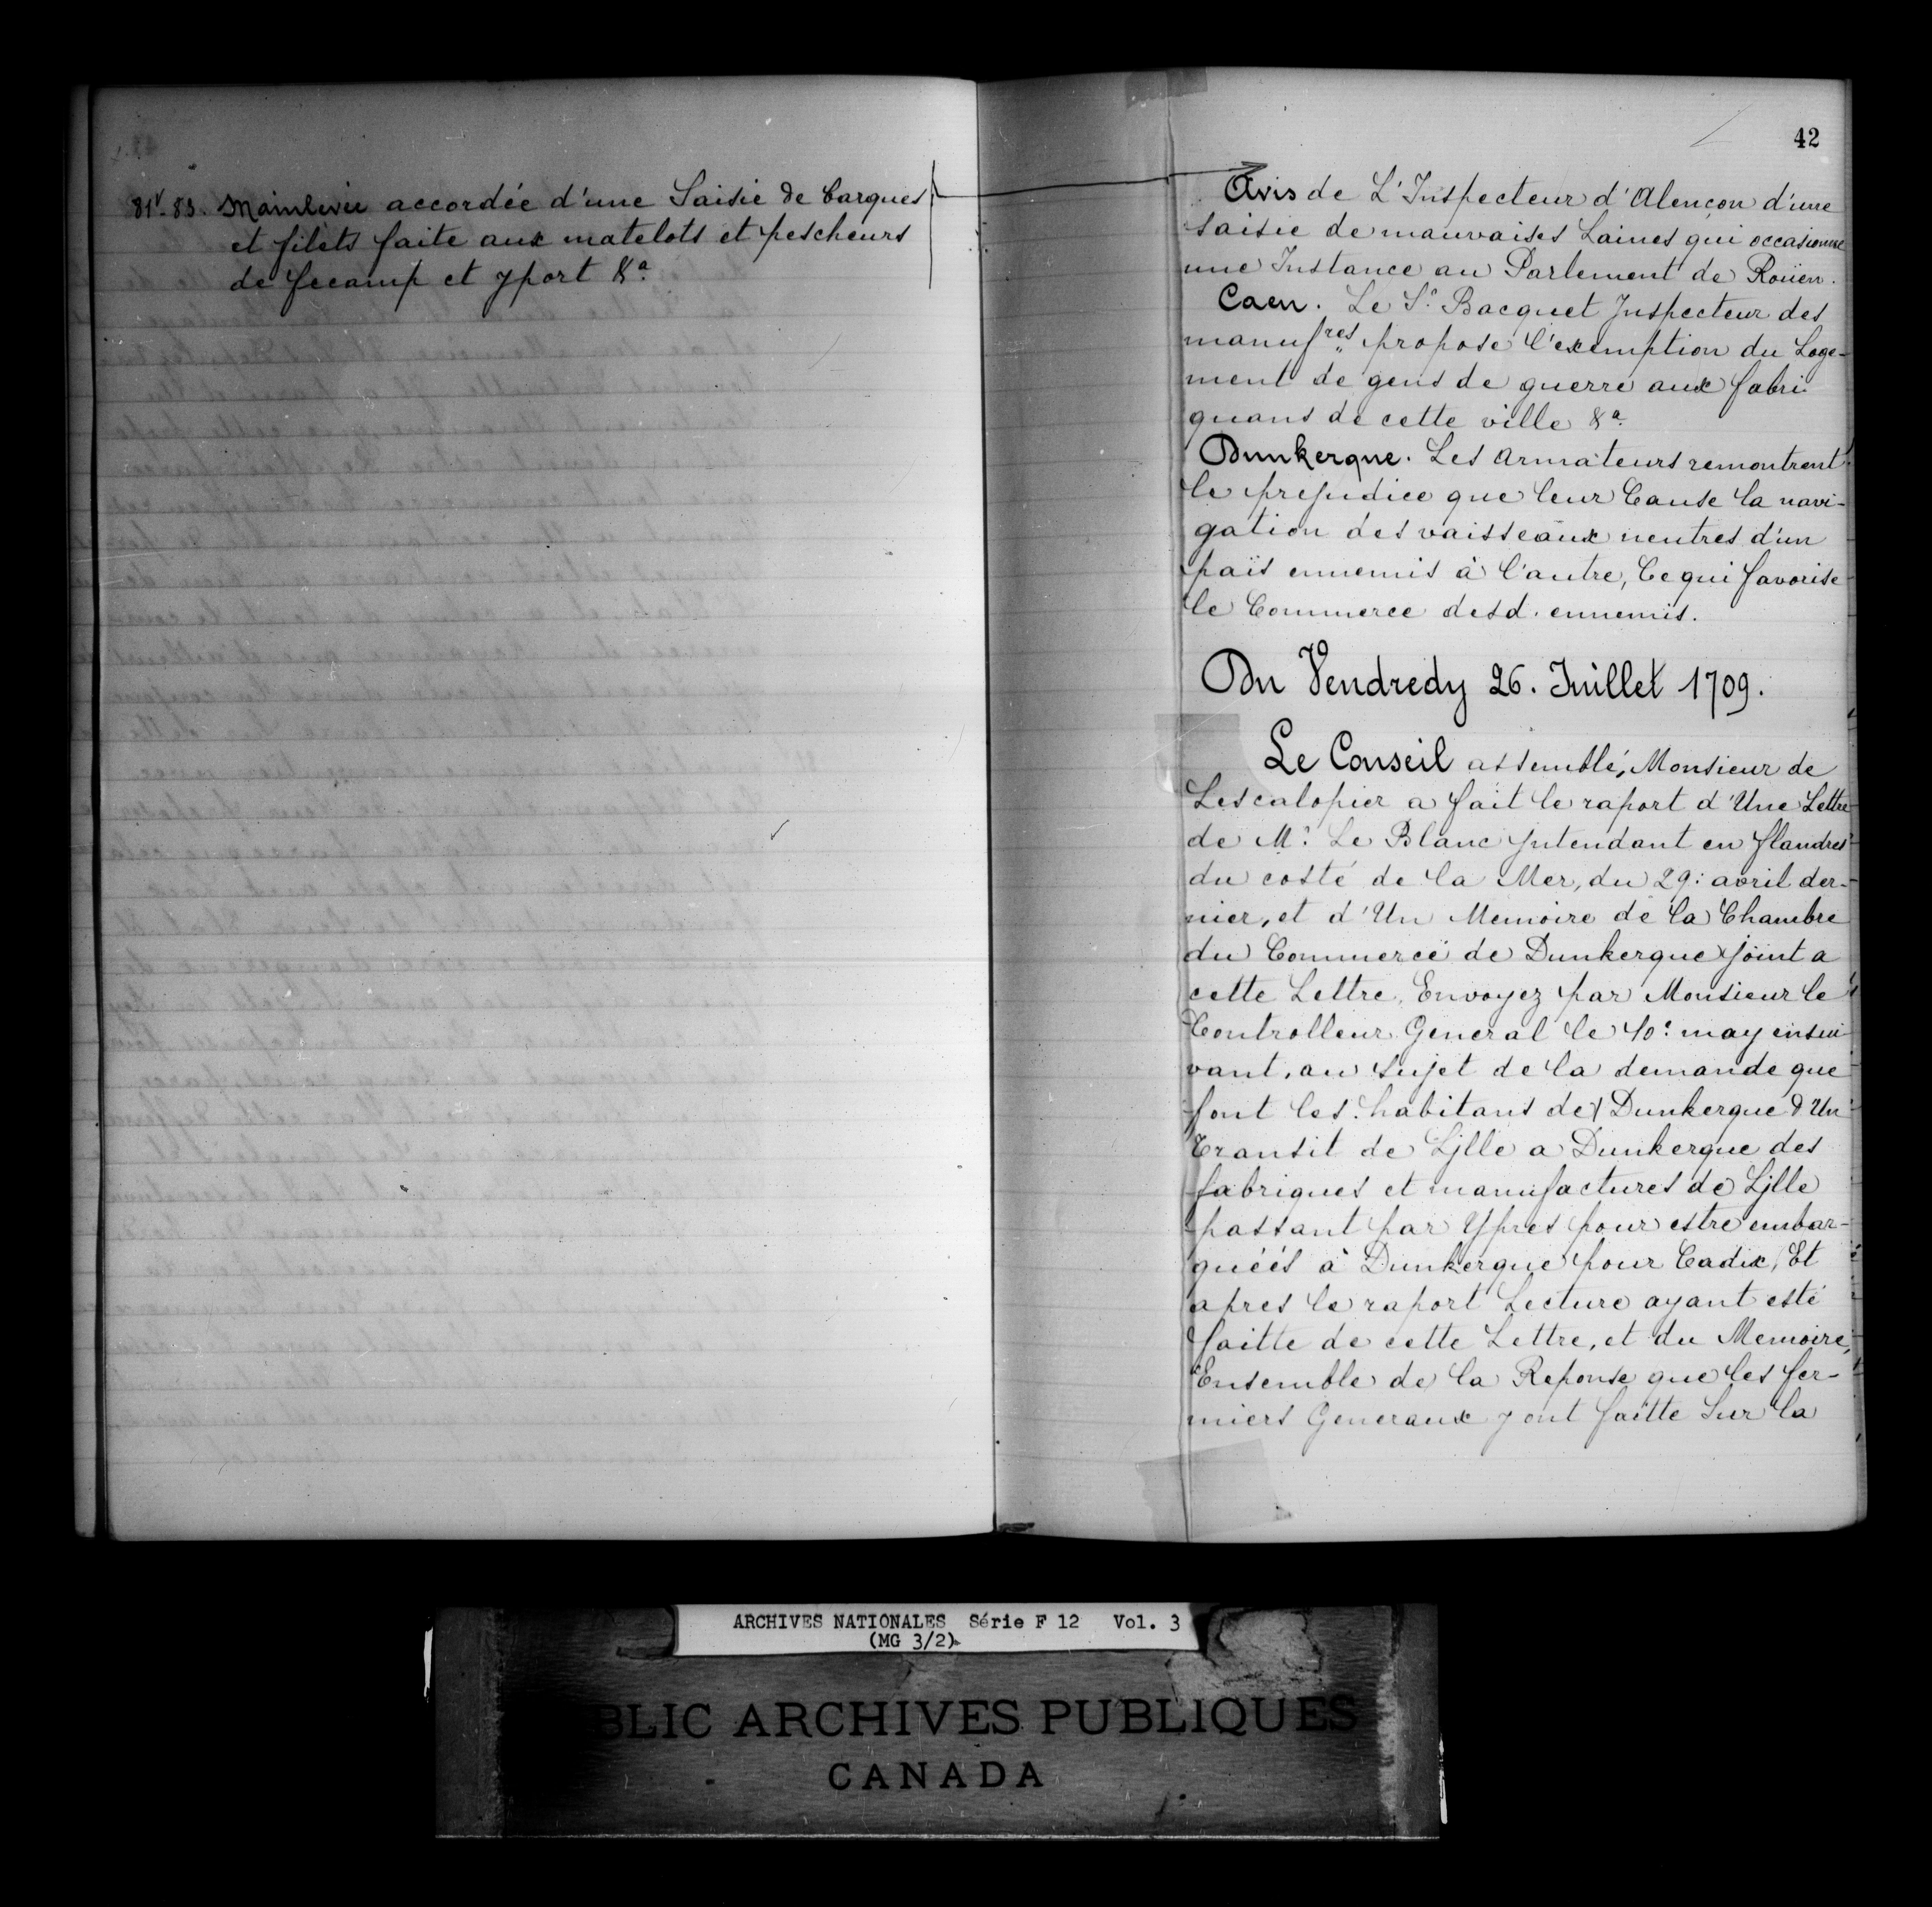 81v-83. Mainlevée accordée d'une Saisie de barques
et filets faite aux matelots et pescheurs
de fecamp et yport &a.
42
Avis de L'Inspecteur d'Alençon d'une
saisie de mauvaises Laines qui occasionne
une Instance au Parlement de Roüen.
Caen. Le Sr. Bacquet Inspecteur des
manufres. propose l'exemption du Loge-
ment de gens de guerre aux fabri-
quans de cette ville &a.
Dunkerque. Les Armateurs remontrent
le prejudice que leur Cause la navi-
gation des vaisseaux neutres d'un
païs ennemis à l'autre, Ce qui favorise
le Commerce desd. ennemis.
Du Vendredy 26. Juillet 1709.
Le Conseil assemblé, Monsieur de
Lescalopier a fait le raport d'Une Lettre
de Mr. Le Blanc Intendant en flandres
du costé de la Mer, du 29: avril der-
nier, et d'Un Memoire de la Chambre
du Commerce de Dunkerque joint a
cette Lettre, Envoyez par Monsieur le
Controlleur General le 10e. may ensui-
vant, au Sujet de la demande que
font les habitans de Dunkerque d'Un
Transit de Lille a Dunkerque des
fabriques et manufactures de Lille
passant par Ypres pour estre embar-
quéés à Dunkerque pour Cadix, Et
apres le raport Lecture ayant esté
faitte de cette Lettre, et du Memoire,
Ensemble de la Reponse que les fer-
miers Generaux y ont faitte Sur la
ARCHIVES NATIONALES Série F 12 Vol. 3
(MG 3/2)
BLIC ARCHIVES PUBLIQUES
CANADA